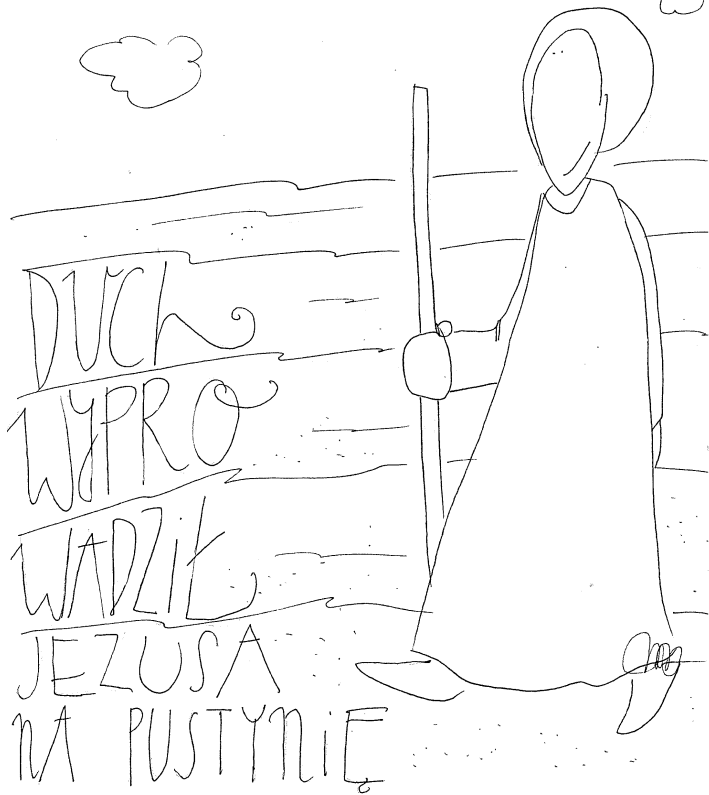 DUCH
WYPRO
WADZIŁ
JEZUSA
NA PUSTYNIĘ